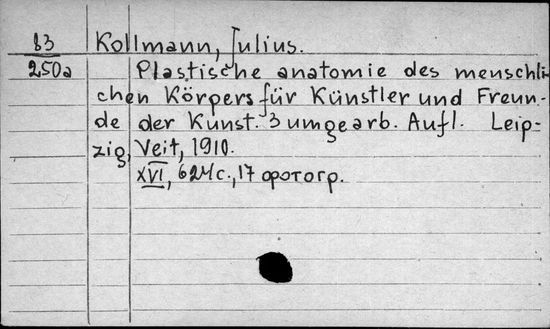 83 Kollmann, Julius.
250a Plastische anatomie des menschli-
chen Körpers für Künstler und Freun-
de der Kunst. 3 umgearb. Aufl. Leip-
zig, Veit, 1910.
XVI, 624 c., 17 фотогр.